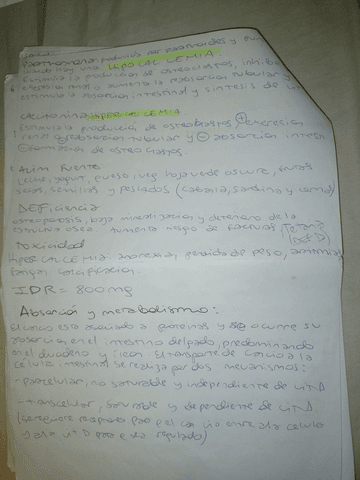 Parathormona producida por paratiroides y
cuando hay una HIPOCALCEMIA.
Estimula la producción de osteoclastos, inhibe
excreción renal o aumenta la reabsorcion tubular y
estimula la absorción intestinal y síntesis de
Calcitonina HIPERCALCEMIA
Estimula la producción de osteoblastos + excreción
renal reabsorcion tubular y - absorción intesti
formación de osteoclastos
Alim Fuente
Leche, yogurt, queso, veg hoja verde oscura, frutos
secos, semillas y pescados (caballa, sardina y
DEFiciencia
osteoporosis, baja mineralización y deterioro de la
osea aumenta riesgo de fracturas,
TOXICIDAD
HIPERCALCEMIA: anorexia, perdida de peso, arritmia
fatiga, calcificación.
IDR = 800mg
Absorción y metabolismo:
El calcio esta asociado a proteinas y se ocurre su
absorción en el intestino delgado, predominando
en el duodeno y ileon. El transporte de calcio a la
celula intestinal se realiza por dos mecanismos:
- paracelular, no saturable y independiente de vit D
- transcelular, saturable y dependiente de vit D.
para q el calcio entre a la celula
y vit D para q sea regulado)